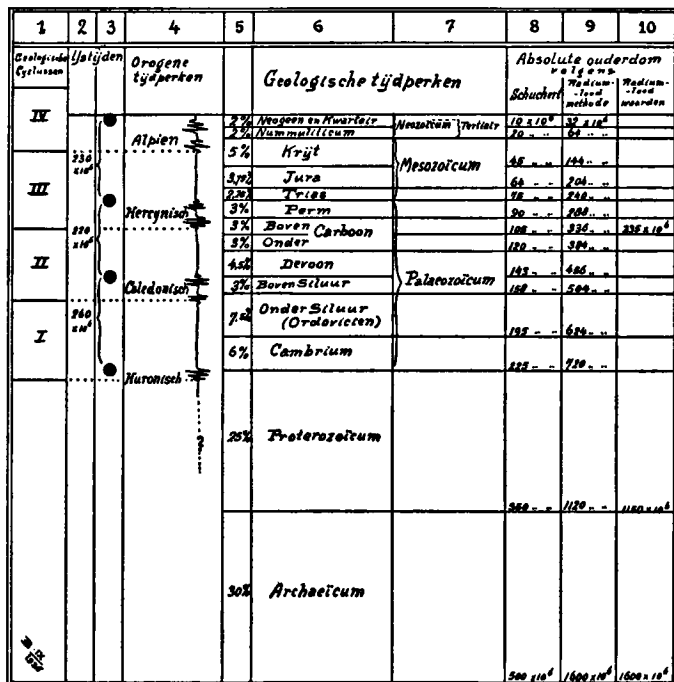 1 2 3 4 5 6 7 8 9 10
Geologische Cyclussen IJstijden Orogene tijdperken Geologische tijdperken Absolute ouderdom volgens
Schuchert Radium-lood methode Radium-lood waarden
IV 2% Neogeen en Kwartair Neozoïcum Tertiair 10 x 10⁶ 32 x 10⁶
Alpien 2% Nummuliticum 20 " " 64 " "
230 x 10⁶ 5% Krijt Mesozoïcum 45 " " 144 " "
III Jura 64 " " 204 " "
Trias 240 " "
Hercynisch 3% Perm 90 " " 288 " "
220 x 10⁶ 3% Boven Carboon 105 " " 336 " " 235 x 10⁶
3% Onder 120 " " 384 " "
II 4.5% Devoon 143 " " 456 " "
Caledonisch 3% Boven Siluur Palaeozoïcum 158 " " 504 " "
260 x 10⁶ 7.5% Onder Siluur
(Ordovicien) 195 " " 624 " "
I 6% Cambrium 225 " " 720 " "
Huronisch
?
25% Proterozoïcum 350 " " 1120 " "
30% Archaeïcum 500 x 10⁶ 1600 x 10⁶ 1600 x 10⁶